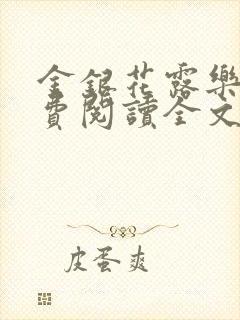 金銀花露樂
費閱讀全文
皮蛋爽